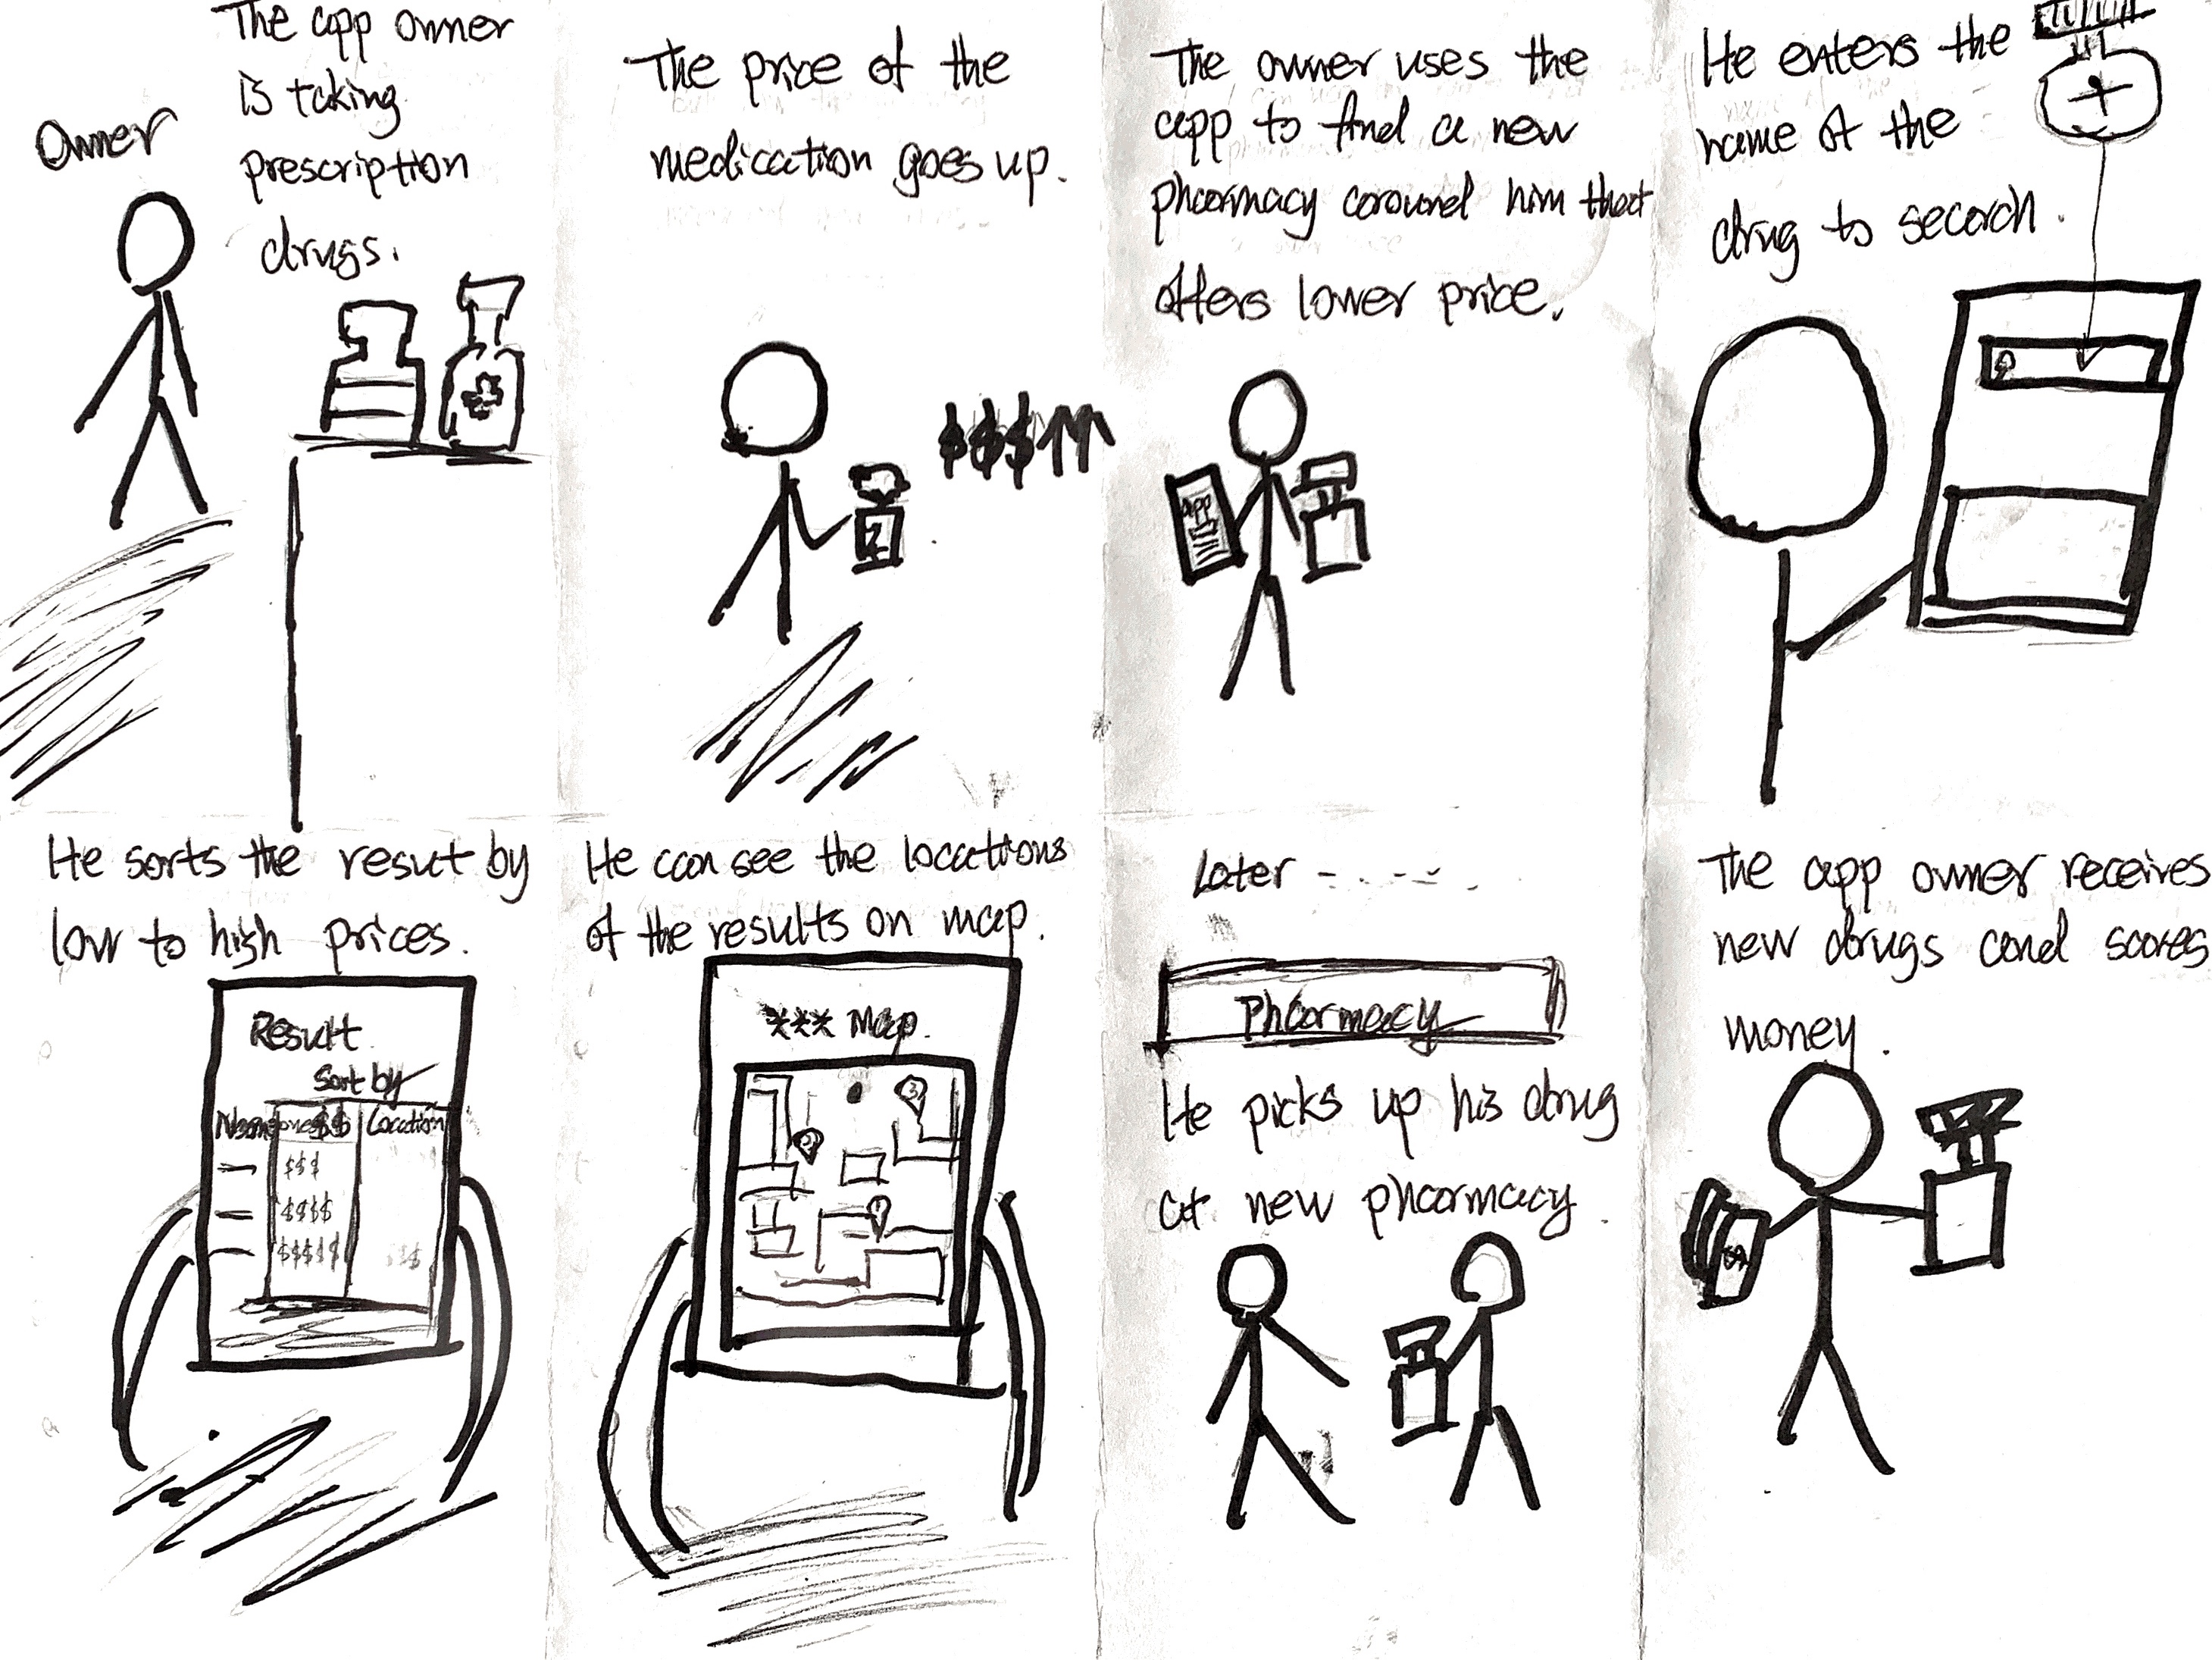 The app owner
is taking
prescription
drugs.
Owner
The price of the
medication goes up.
$$$↑↑
The owner uses the
app to find a new
pharmacy around him that
offers lower price.
app
He enters the
name of the
drug to search.
He sorts the result by
low to high prices.
Result
Sort by
Name $$ Location
$$$
$$$$
$$$$$
He can see the locations
of the results on map.
*** Map.
Later -----.
Pharmacy
He picks up his drug
at new pharmacy.
The app owner receives
new drugs and scores
money.